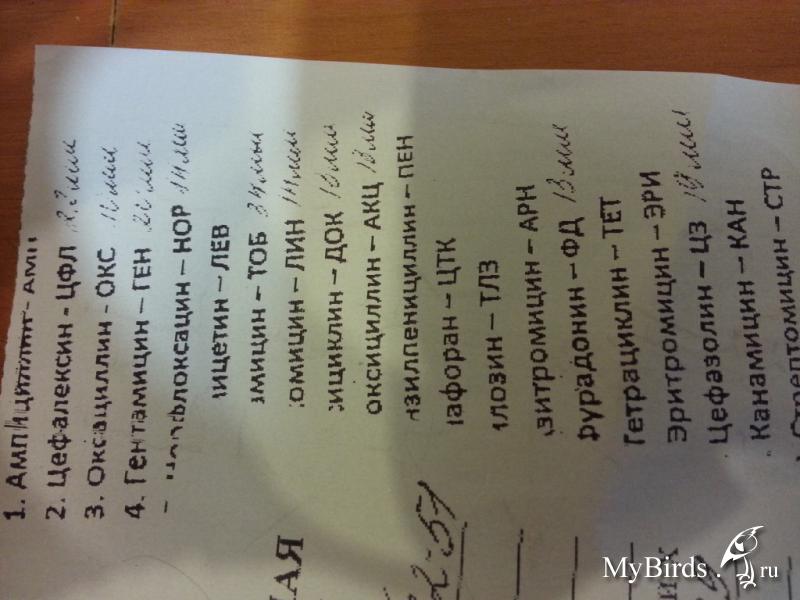 1. Ампициллин - АМП
2. Цефалексин - ЦФЛ
3. Оксациллин - ОКС 16 мм
4. Гентамицин – ГЕН 22 мм
флоксацин – НОР 14 мм
ицетин – ЛЕВ
мицин – ТОБ 34 мм
омицин – ЛИН 14 мм
ициклин – ДОК 10 мм
оксициллин – АКЦ 13 мм
нзилпенициллин – ПЕН
афоран – ЦТК
лозин – ТЛЗ
зитромицин – АРН
Фурадонин – ФД 13 мм
Тетрациклин – ТЕТ
Эритромицин – ЭРИ
Цефазолин – ЦЗ 19 мм
Канамицин – КАН
Стрептомицин – СТР
АЯ
2-51
MyBirds.ru